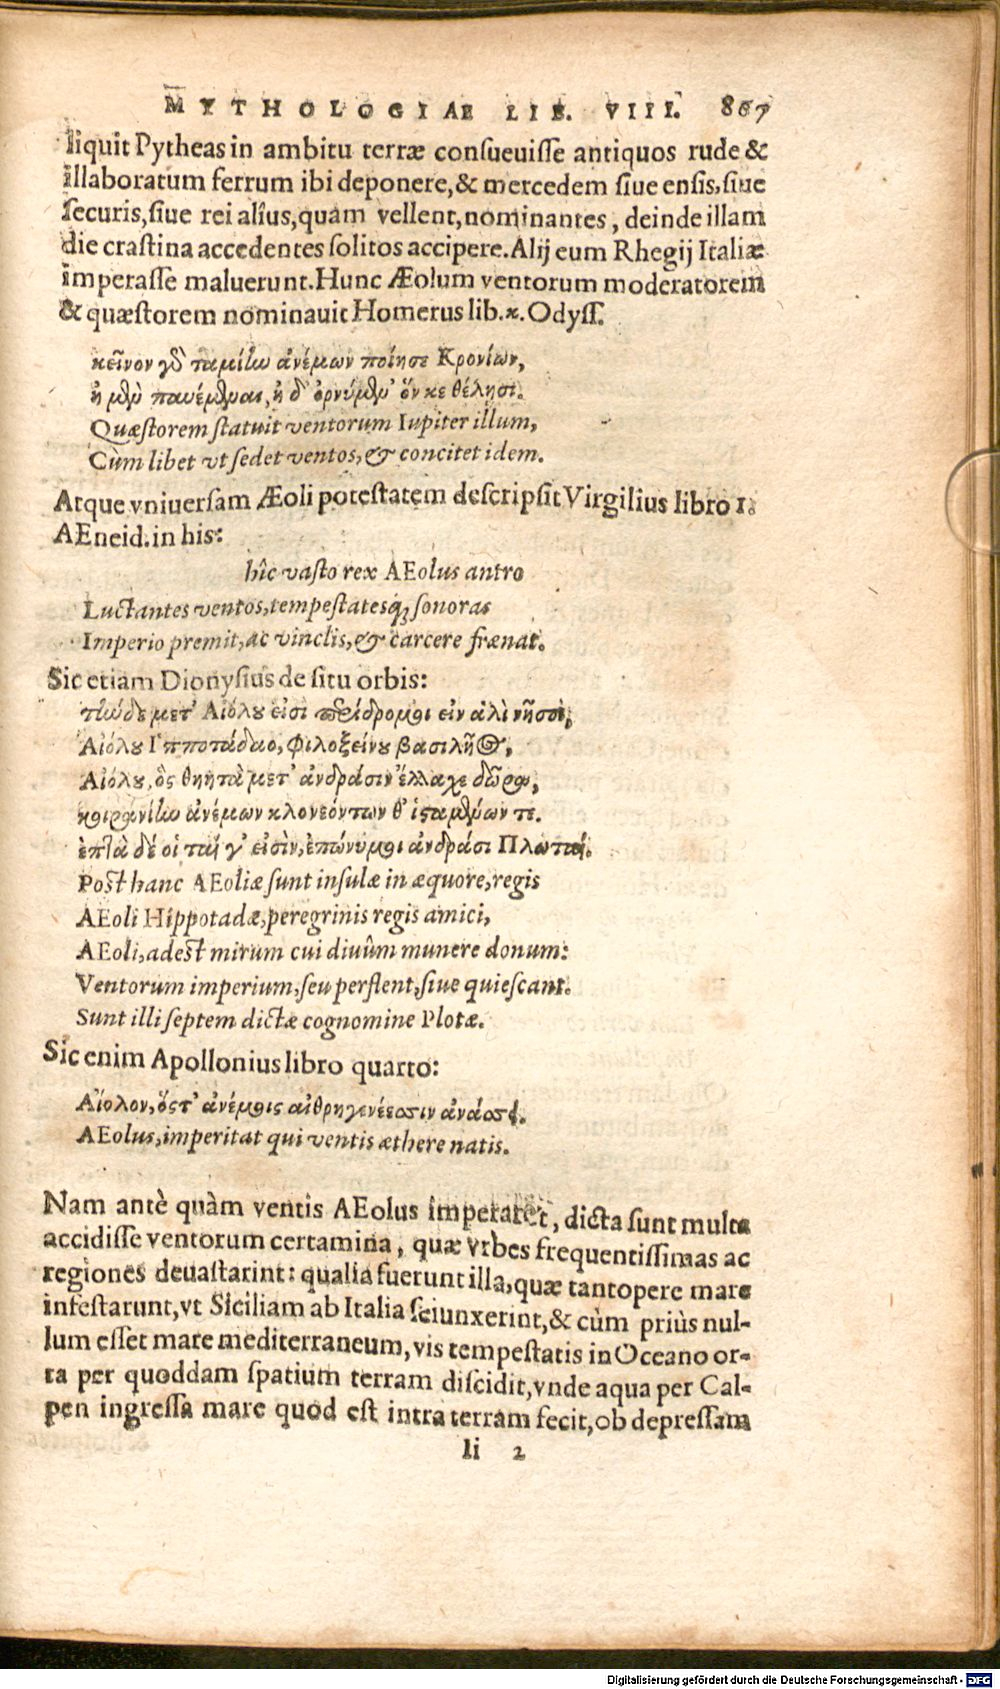 MYTHOLOGIÆ LIB. VIII. 867
liquit Pytheas in ambitu terræ consueuisse antiquos rude &
illaboratum ferrum ibi deponere, & mercedem siue ensis, siue
securis, siue rei alîus, quam vellent, nominantes, deinde illam
die crastina accedentes solitos accipere. Alij eum Rhegij Italiæ
imperasse maluerunt. Hunc Æolum ventorum moderatorem
& quæstorem nominauit Homerus lib. κ. Odyss.
κεῖνον γὸ ταμίην ἀνέμων ποίησε Κρονίων,
ἠ μὲν παυέμεναι, ἠ δ' ὀρνύμεν ὅν κε θέλησι.
Quæstorem statuit ventorum Iupiter illum,
Cùm libet vt sedet ventos, & concitet idem.
Atque vniuersam Æoli potestatem descripsit Virgilius libro 1.
AEneid. in his:
hîc vasto rex AEolus antro
Luctantes ventos, tempestatesq; sonoras
Imperio premit, ac vinclis, & carcere frænat.
Sic etiam Dionysius de situ orbis:
τὴν δε μετ' Αἰόλου εἰσὶ περίδρομοι εἰν ἁλὶ νῆσοι,
Αἰόλου Ἱπποτάδαο, φιλοξείνου βασιλῆος,
Αἰόλου, ὃς θηητὰ μετ' ἀνδράσιν ἔλλαχε δῶρα,
κοιρανίην ἀνέμων κλονεόντων θ' ἱσταμένων τε.
ἑπτὰ δέ οἱ ταί γ' εἰσὶν, ἐπώνυμοι ἀνδράσι Πλωταί.
Post hanc AEoliæ sunt insulæ in æquore, regis
AEoli Hippotadæ, peregrinis regis amici,
AEoli, adest mirum cui diuûm munere donum:
Ventorum imperium, seu perflent, siue quiescant.
Sunt illi septem dictæ cognomine Plotæ.
Sic enim Apollonius libro quarto:
Αἴολον, ὅς τ' ἀνέμοις αἰθρηγενέεσσιν ἀνάσσει.
AEolus, imperitat qui ventis æthere natis.
Nam antè quàm ventis AEolus imperaret, dicta sunt multa
accidisse ventorum certamina, quæ vrbes frequentissimas ac
regiones deuastarint: qualia fuerunt illa, quæ tantopere mare
infestarunt, vt Siciliam ab Italia seiunxerint, & cùm priùs nul-
lum esset mare mediterraneum, vis tempestatis in Oceano or-
ta per quoddam spatium terram discidit, vnde aqua per Cal-
pen ingressa mare quod est intra terram fecit, ob depressam
Ii 2
Digitalisierung gefördert durch die Deutsche Forschungsgemeinschaft - DFG